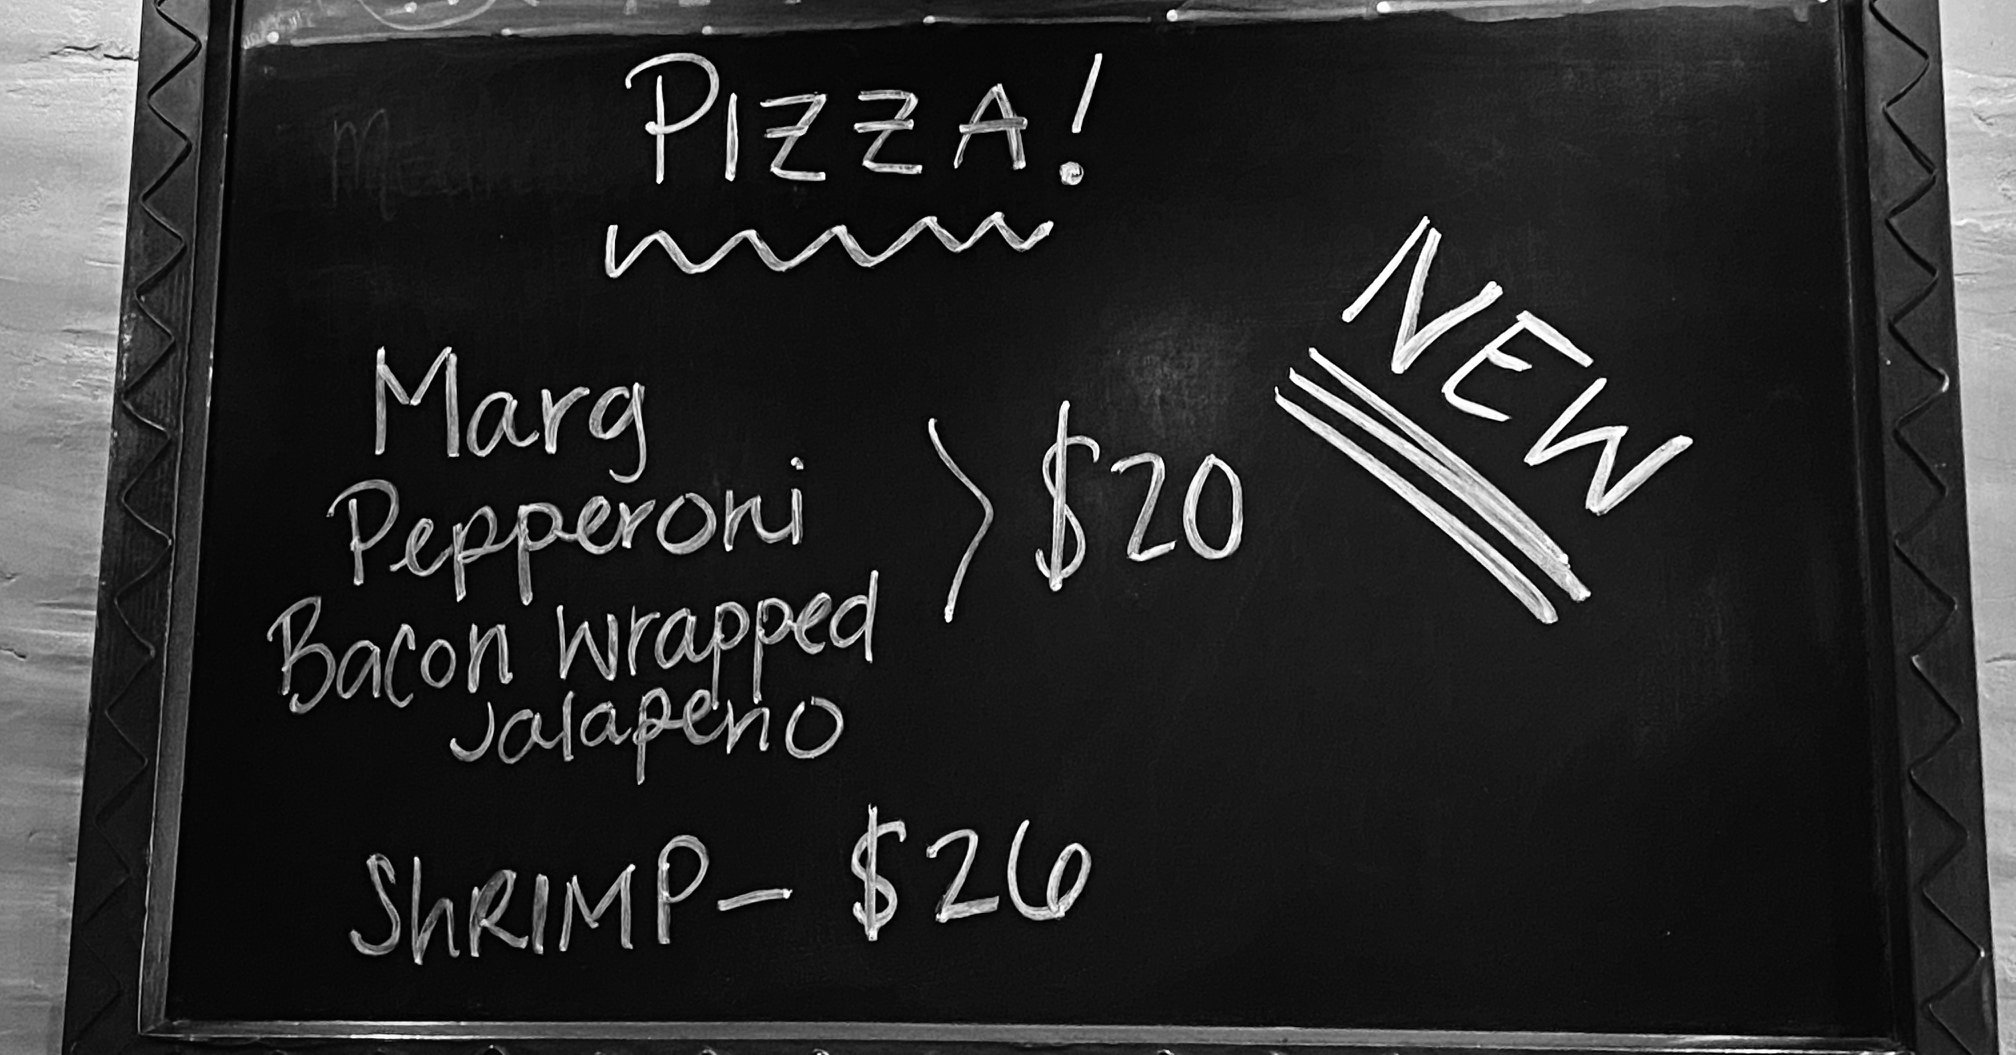 PIZZA!
NEW
Marg
Pepperoni
> $20
Bacon wrapped
Jalapeno
ShRIMP - $26